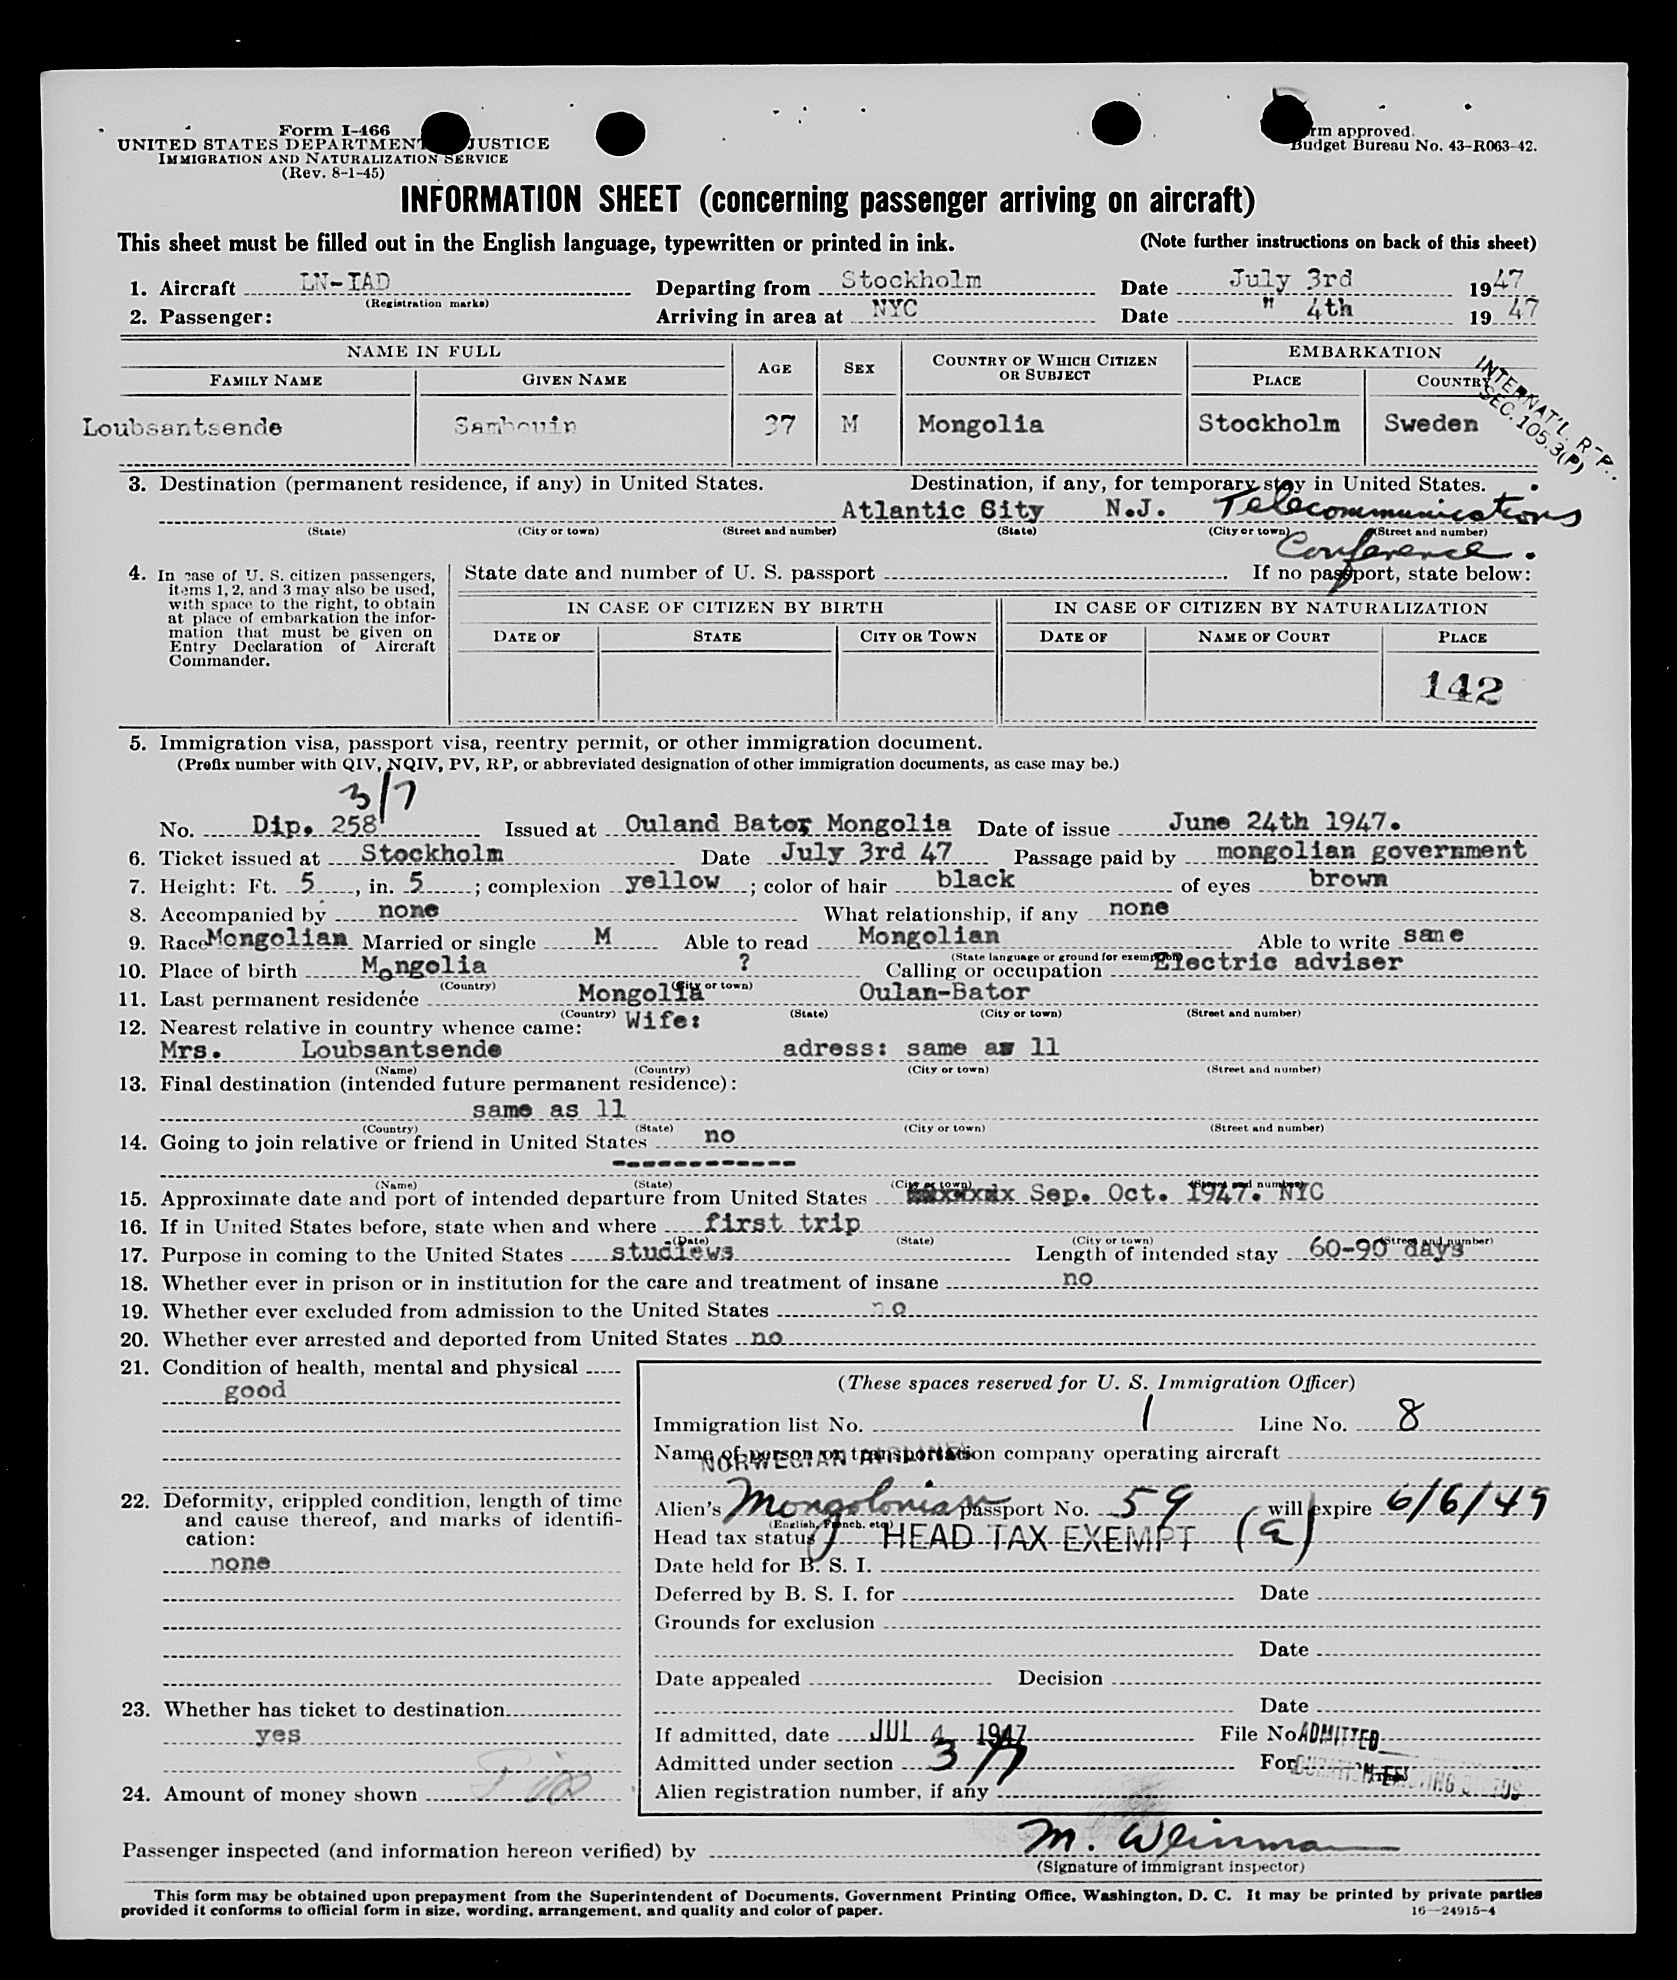 Form I-466
UNITED STATES DEPARTMENT JUSTICE
IMMIGRATION AND NATURALIZATION SERVICE
(Rev. 8-1-45)
rm approved.
Budget Bureau No. 43-R063-42.
INFORMATION SHEET (concerning passenger arriving on aircraft)
This sheet must be filled out in the English language, typewritten or printed in ink. (Note further instructions on back of this sheet)
1. Aircraft LN-IAD Departing from Stockholm Date July 3rd 1947
(Registration marks)
2. Passenger: Arriving in area at NYC Date " 4th 1947
NAME IN FULL AGE SEX COUNTRY OF WHICH CITIZEN OR SUBJECT EMBARKATION
FAMILY NAME GIVEN NAME PLACE COUNTRY
INTERNAT'L. REP.
SEC. 105.3(P)
Loubsantsende Sambouin 37 M Mongolia Stockholm Sweden
3. Destination (permanent residence, if any) in United States. Destination, if any, for temporary stay in United States.
Atlantic City N.J. Telecommunications
(State) (City or town) (Street and number) (State) (City or town) (Street and number)
Conference.
4. In case of U. S. citizen passengers, items 1, 2, and 3 may also be used, with space to the right, to obtain at place of embarkation the information that must be given on Entry Declaration of Aircraft Commander.
State date and number of U. S. passport If no passport, state below:
IN CASE OF CITIZEN BY BIRTH IN CASE OF CITIZEN BY NATURALIZATION
DATE OF STATE CITY OR TOWN DATE OF NAME OF COURT PLACE
142
5. Immigration visa, passport visa, reentry permit, or other immigration document.
(Prefix number with QIV, NQIV, PV, RP, or abbreviated designation of other immigration documents, as case may be.)
3/7
No. Dip. 258 Issued at Ouland Bator Mongolia Date of issue June 24th 1947.
6. Ticket issued at Stockholm Date July 3rd 47 Passage paid by mongolian government
7. Height: Ft. 5, in. 5; complexion yellow; color of hair black of eyes brown
8. Accompanied by none What relationship, if any none
9. Race Mongolian Married or single M Able to read Mongolian Able to write same
(State language or ground for exemption)
10. Place of birth Mongolia ? Calling or occupation Electric adviser
(Country) (City or town)
11. Last permanent residence Mongolia Oulan-Bator
(Country) (State) (City or town) (Street and number)
12. Nearest relative in country whence came: Wife:
Mrs. Loubsantsende adress: same as 11
(Name) (Country) (City or town) (Street and number)
13. Final destination (intended future permanent residence):
same as 11
(Country) (State) (City or town) (Street and number)
14. Going to join relative or friend in United States no
------------
(Name) (State) (City or town) (Street and number)
15. Approximate date and port of intended departure from United States Sep. Oct. 1947. NYC
16. If in United States before, state when and where first trip
(Date) (State) (City or town) (Street and number)
17. Purpose in coming to the United States studiews Length of intended stay 60-90 days
18. Whether ever in prison or in institution for the care and treatment of insane no
19. Whether ever excluded from admission to the United States no
20. Whether ever arrested and deported from United States no
21. Condition of health, mental and physical
good
22. Deformity, crippled condition, length of time and cause thereof, and marks of identification:
none
23. Whether has ticket to destination
yes
24. Amount of money shown
(These spaces reserved for U. S. Immigration Officer)
Immigration list No. 1 Line No. 8
Name of person or transportation company operating aircraft
NORWEGIAN AIRLINES
Alien's Mongolonian passport No. 59 will expire 6/6/49
(English, French, etc.)
Head tax status HEAD TAX EXEMPT (a)
Date held for B. S. I.
Deferred by B. S. I. for Date
Grounds for exclusion
Date
Date appealed Decision
Date
If admitted, date JUL 4 1947 File No. ADMITTED
Admitted under section 3/7 For
Alien registration number, if any
Passenger inspected (and information hereon verified) by M. Weinman
(Signature of immigrant inspector)
This form may be obtained upon prepayment from the Superintendent of Documents, Government Printing Office, Washington, D. C. It may be printed by private parties
provided it conforms to official form in size, wording, arrangement, and quality and color of paper. 16—24915-4